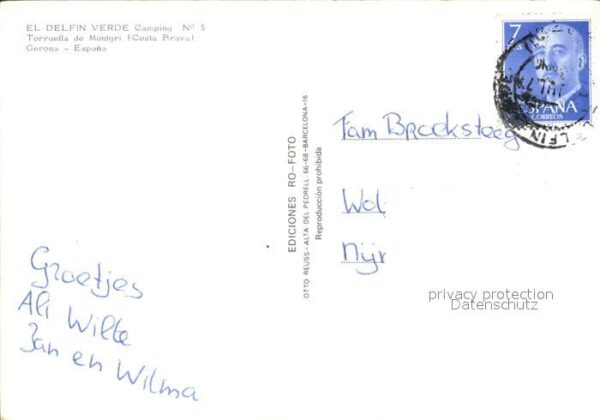 EL DELFIN VERDE Camping Nº 5
Torruella de Montgri (Costa Brava)
Gerona - España
7
PTAS
ESPAÑA
CORREOS
EDICIONES RO-FOTO
OTTO REUSS-ALTA DEL PEDRELL 66-68-BARCELONA-16
Reproducción prohibida
Fam Brocksteeg
Wol
Nijr
Groetjes
Ali Wille
Jan en Wilma
privacy protection
Datenschutz